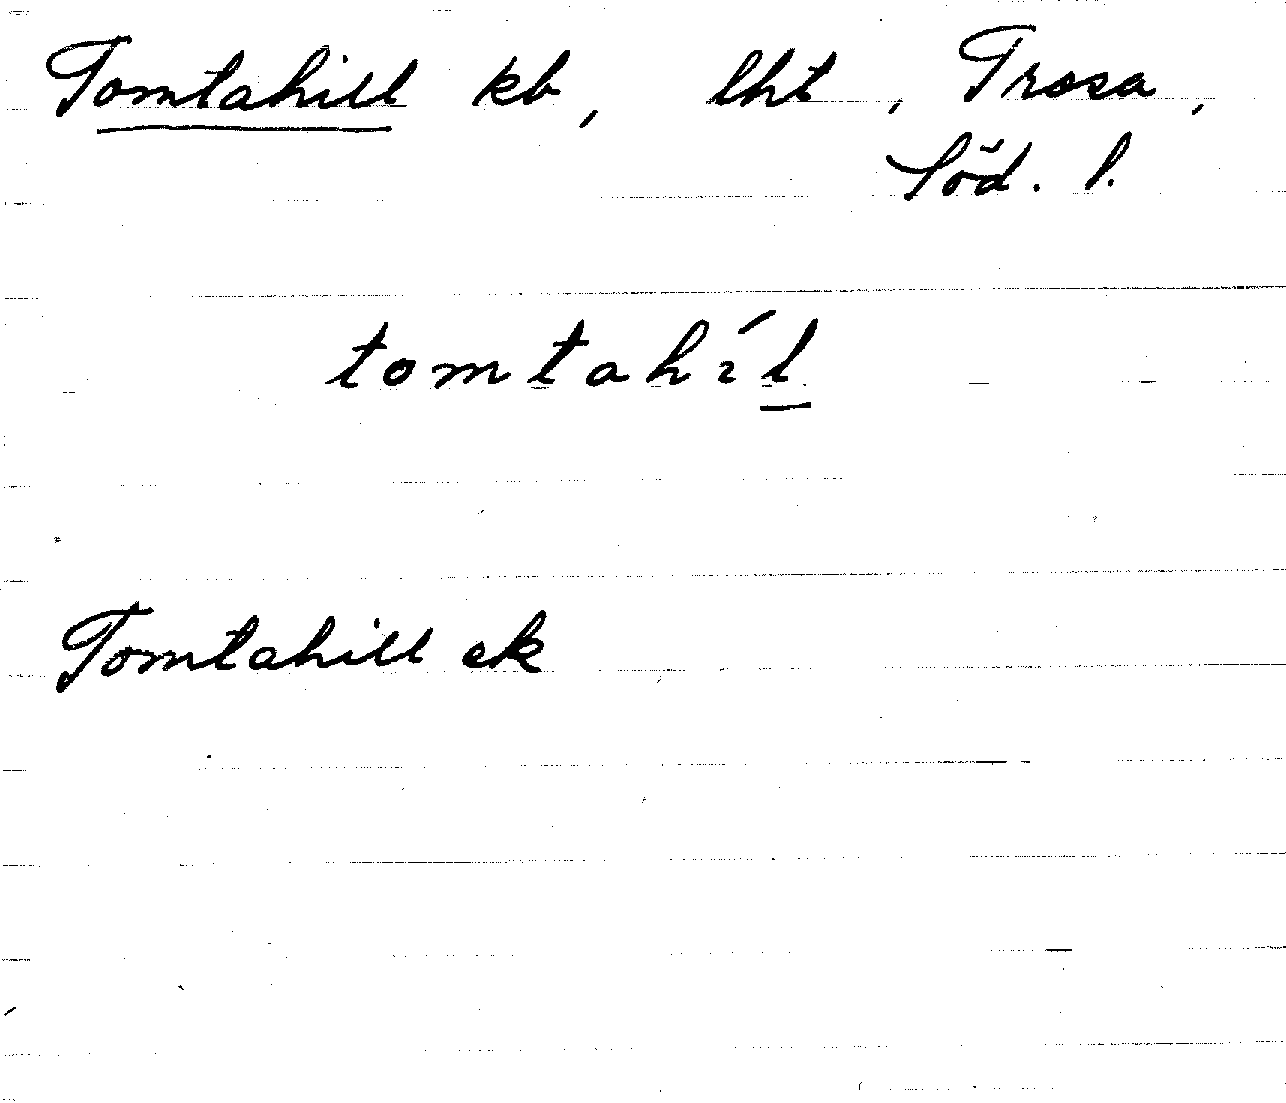 Tomtahill kb, lht, Trosa,
Söd. l.
tomtahíl
Tomtahill ek